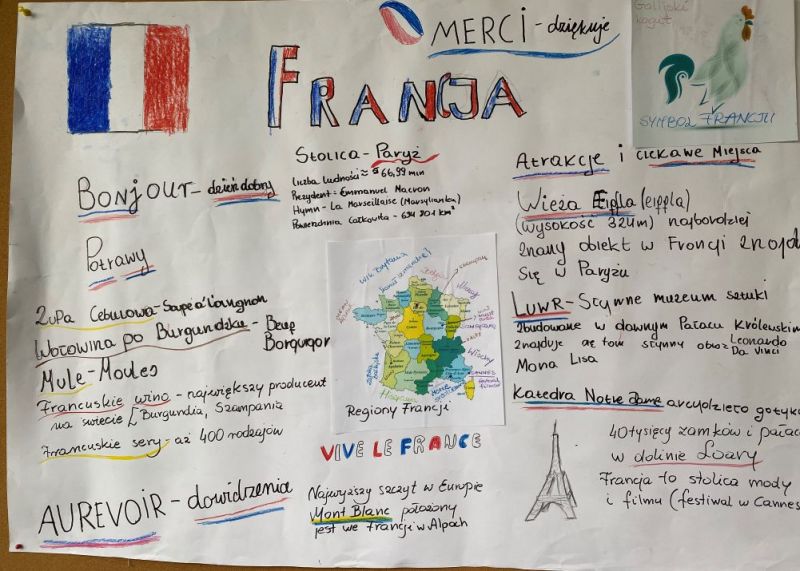 MERCI - dziękuje
Galijski
kogut
SYMBOL FRANCJI
FRANCJA
BONJOUR - dzień dobry
Stolica - Paryż
Liczba ludności ≈ 66,99 mln
Prezydent = Emmanuel Macron
Hymn - La Marseillaise (Marsylianka)
Powierzchnia Całkowita -
Potrawy
Zupa Cebulowa -
Wołowina po Burgundzku - Beuf
Borgugor
Mule - Moules
Francuskie wino - największy producent
na świecie [Burgundia, Szampania
Francuskie sery - aż 400 rodzajów
AUREVOIR - dowidzenia
Wlk. Brytania
Włochy
CANNES
Regiony Francji
VIVE LE FRANCE
Najwyższy szczyt w Europie
Mont Blanc położony
jest we Francji w Alpach
Atrakcje i ciekawe Miejsca
Wieża Eiffla (eiffla)
(wysokość 324m) najbardziej
znany obiekt w Francji znajd
się w Paryżu
LUWR - Słynne muzeum sztuki
zbudowane w dawnym Pałacu Królewskim
znajduje się tam słynny obraz Leonardo
Da Vinci
Mona Lisa
Katedra Notre Dame arcydzieło gotyk
40 tysięcy zamków i pałac
w dolinie Loary
Francja to stolica mody
i filmu (festiwal w Cannes